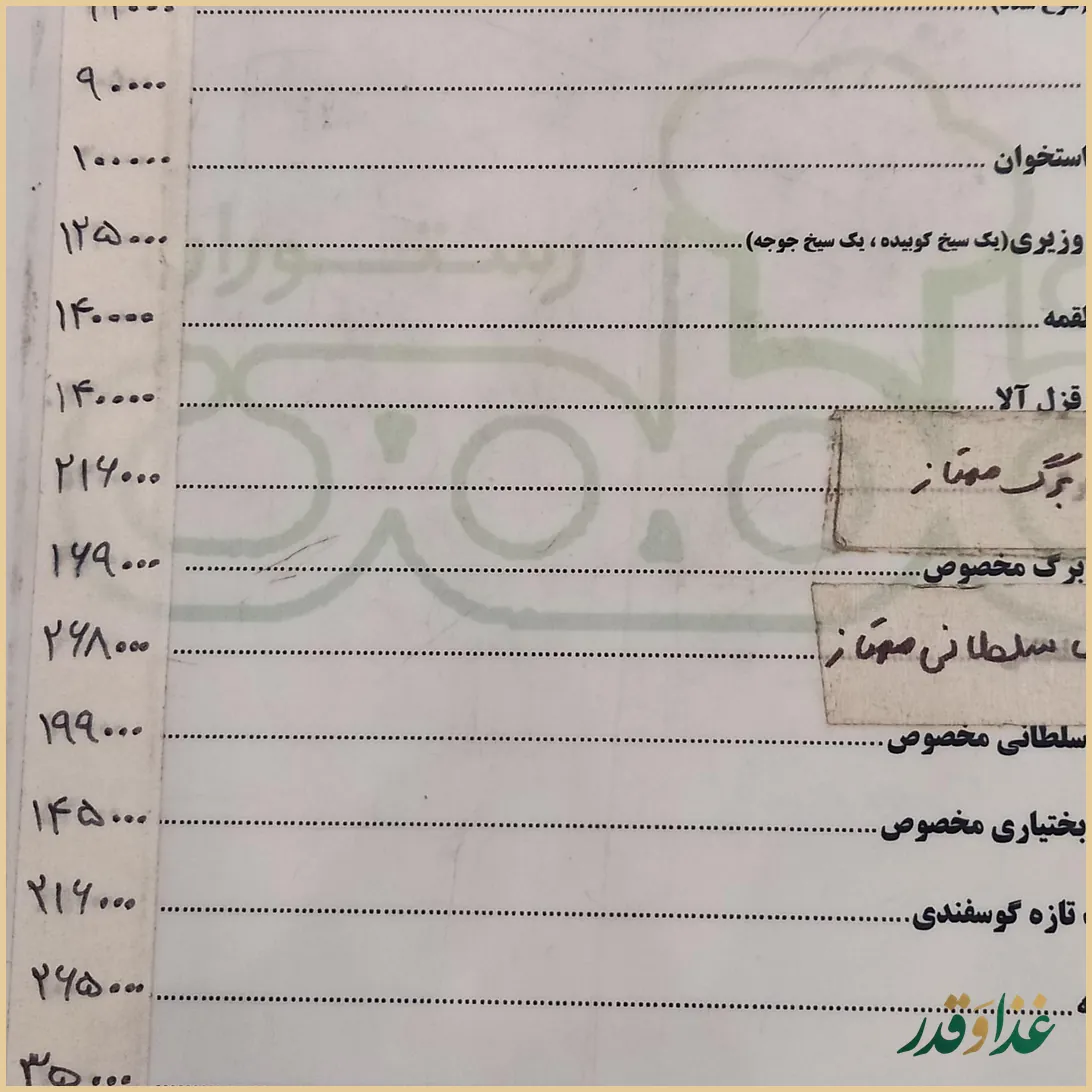 ۹۰۰۰۰
استخوان ۱۰۰۰۰۰
وزیری (یک سیخ کوبیده ، یک سیخ جوجه) ۱۲۵۰۰۰
لقمه ۱۴۰۰۰۰
قزل آلا ۱۴۰۰۰۰
برگ ممتاز ۲۱۶۰۰۰
برگ مخصوص ۱۶۹۰۰۰
سلطانی ممتاز ۲۶۸۰۰۰
سلطانی مخصوص ۱۹۹۰۰۰
بختیاری مخصوص ۱۴۵۰۰۰
تازه گوسفندی ۲۱۶۰۰۰
۲۶۵۰۰۰
۳۵۰۰۰
رستوران
غذا و قدر